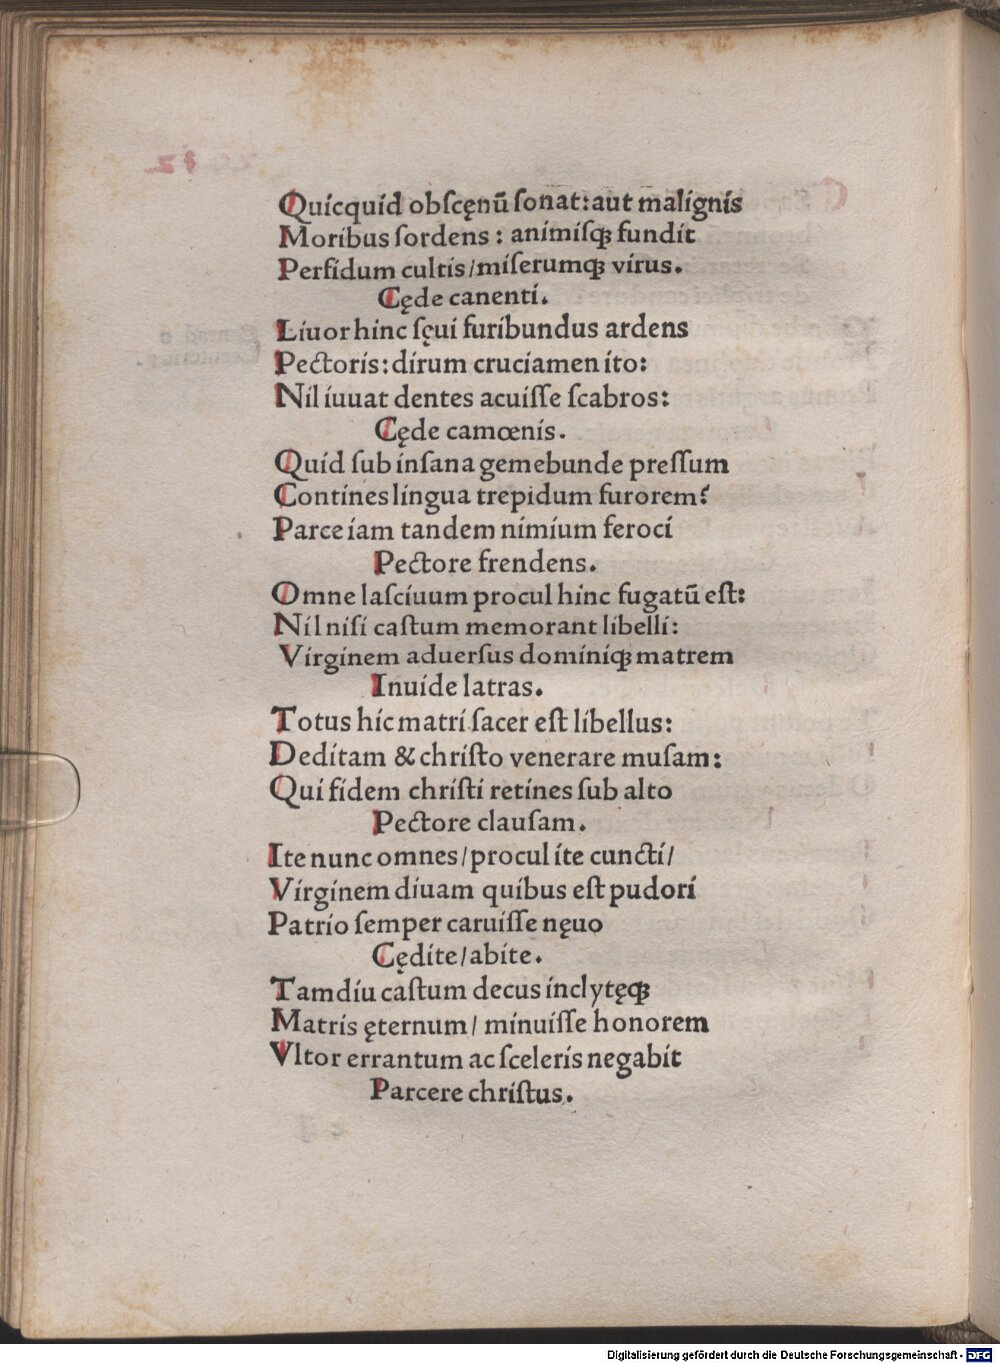 Quicquid obſcęnū ſonat: aut malignis
Moribus ſordens: animiſqꝫ fundit
Perfidum cultis/ miſerumqꝫ virus.
Cęde canenti.
Liuor hinc ſęui furibundus ardens
Pectoris: dirum cruciamen ito:
Nil iuuat dentes acuiſſe ſcabros:
Cęde camœnis.
Quid ſub inſana gemebunde preſſum
Contines lingua trepidum furorem?
Parce iam tandem nimium feroci
Pectore frendens.
Omne laſciuum procul hinc fugatū eſt:
Nil niſi caſtum memorant libelli:
Virginem aduerſus dominiqꝫ matrem
Inuide latras.
Totus hic matri ſacer eſt libellus:
Deditam & chriſto venerare muſam:
Qui fidem chriſti retines ſub alto
Pectore clauſam.
Ite nunc omnes/ procul ite cuncti/
Virginem diuam quibus eſt pudori
Patrio ſemper caruiſſe nęuo
Cędite/ abite.
Tamdiu caſtum decus inclytęqꝫ
Matris ęternum/ minuiſſe honorem
Vltor errantum ac ſceleris negabit
Parcere chriſtus.
Digitalisierung gefördert durch die Deutsche Forschungsgemeinschaft - DFG